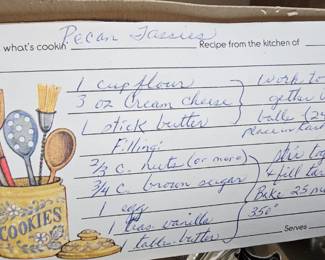 what's cookin' Pecan Tassies Recipe from the kitchen of
1 cup flour work to
3 oz cream cheese gether
1 stick butter balls (24
Filling: place in tart
2/3 c. nuts (or more) stir tog
3/4 c. brown sugar & fill tar
1 egg Bake 25 m
1 teas vanilla 350°
1 table. butter
COOKIES
Serves